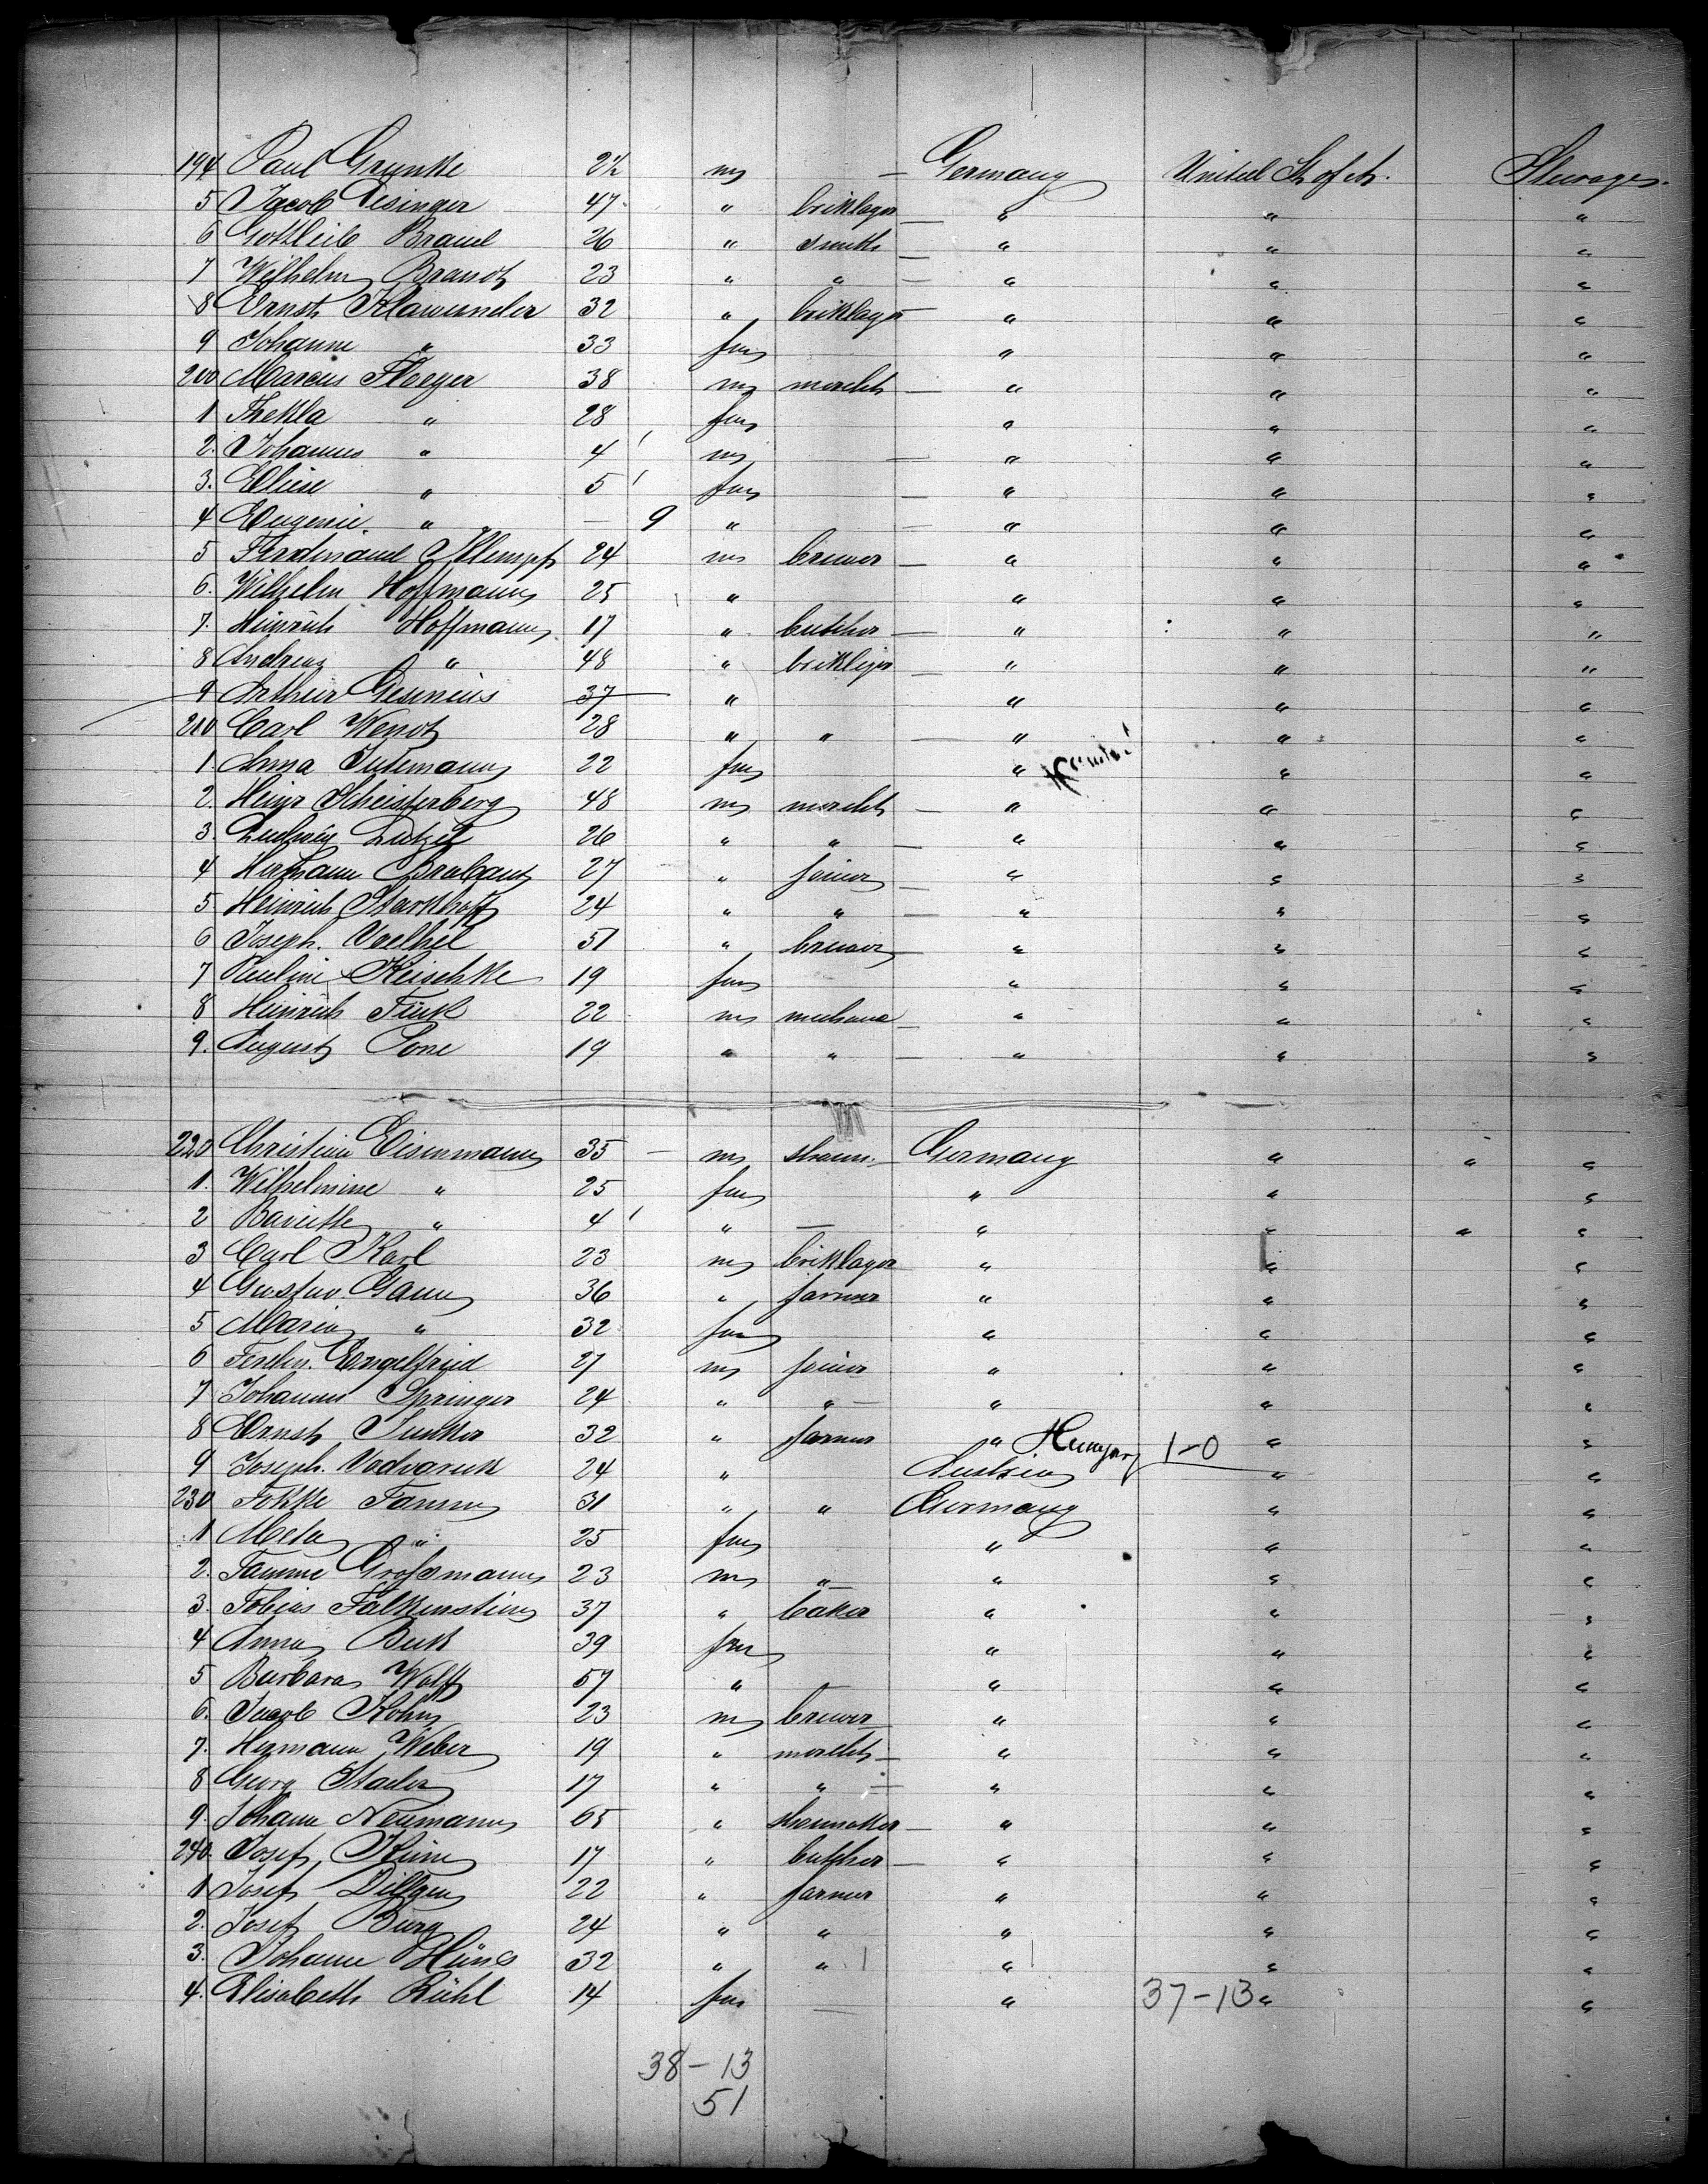 194 Paul Grunke 22 m — Germany United St of A. Steerages.
5 Jacob Deisinger 47 " briklayer — " " "
6 Gottleib Brand 26 " smith — " " "
7 Wilhelm Brandt 23 " " — " " "
8 Ernst Klawunder 32 " briklayer — " " "
9 Johanne " 33 fm " " "
200 Marcus Floeger 38 m mercht — " " "
1 Thekla " 28 fm " " "
2. Johannes " 4 m — " " "
3. Eliese " 5 fm — " " "
4 Eugenie " — 9 " — " " "
5 Ferdinand Klempf 24 m brewer — " " "
6. Wilhelm Hoffmann 25 " " " "
7. Heinrich Hoffmann 17 " butcher — " " "
8 Andreas " 48 " brikleyer — " " "
9 Arthur Gesenius 37 " " " "
210 Carl Wendt 28 " " — " " "
1. Anna Sutemann 22 fm " " "
2. Heinr Scheisterberg 48 m mercht — " " "
3. Ludwig Lutzel 26 " " — " " "
4 Hermann Brabant 27 " joiner — " " "
5. Heinrich Starkhoff 24 " " — " " "
6 Joseph. Voelkel 51 " brewer — " " "
7 Pauline Keischke 19 fm " " "
8 Heinrich Fink 22 m mechanic — " " "
9. August Pone 19 " " — " " "
220 Christian Eisenmann 35 — m shoem. — Germany " " "
1. Wilhelmine " 25 fm " " "
2 " 4 " — " " " "
3 Carl Karl 23 m briklayer " " "
4 Gustav Gann 36 " farmer " " "
5 Maria " 32 fm " " "
6 Ferdin. Engelfried 27 m joiner " " "
7 Johann Springer 24 " " — " " "
8 Ernst Junker 32 " farmer " Hungary 1-0 " "
9 Joseph. Vodvaruk 24 " Austria " "
230 Fokke Tammen 31 " " Germany " "
1 Meta " 25 fm " " "
2. Tamme Großmann 23 m " " " "
3. Tobias Falkenstein 37 " baker " " "
4 Anna Buck 39 fm " " "
5 Barbara Wolff 57 " — " " "
6. Jacob Kohn 23 m brewer " " "
7. Hermann Weber 19 " mercht — " " "
8 Georg Stader 17 " " — " " "
9. Johann Neumann 65 " shoemaker — " " "
240. Josef Kün 17 " butcher — " " "
1 Josef Dillgen 22 " farmer " " "
2. Josef Burg 24 " " " " "
3. Johann Hüns 32 " " " " "
4. Elisabeth Rühl 14 fm — " 37-13 " "
38-13
51